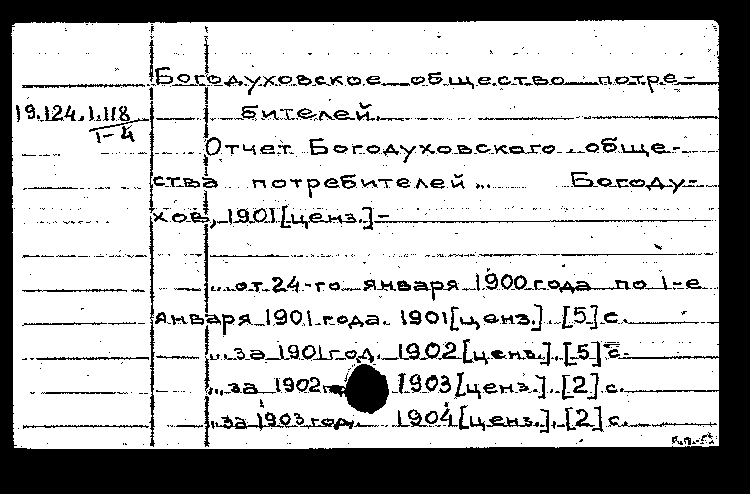 Богодуховское общество потре-
19.124.1.118
1-4
бителей.
Отчет Богодуховского обще-
ства потребителей... Богоду-
хов, 1901 [ценз.]-
...от 24-го января 1900 года по 1-е
января 1901 года. 1901 [ценз.]. [5] с.
...за 1901 год. 1902 [ценз.]. [5] с.
...за 1902 1903 [ценз.]. [2] с.
...за 1903 год. 1904 [ценз.]. [2] с.